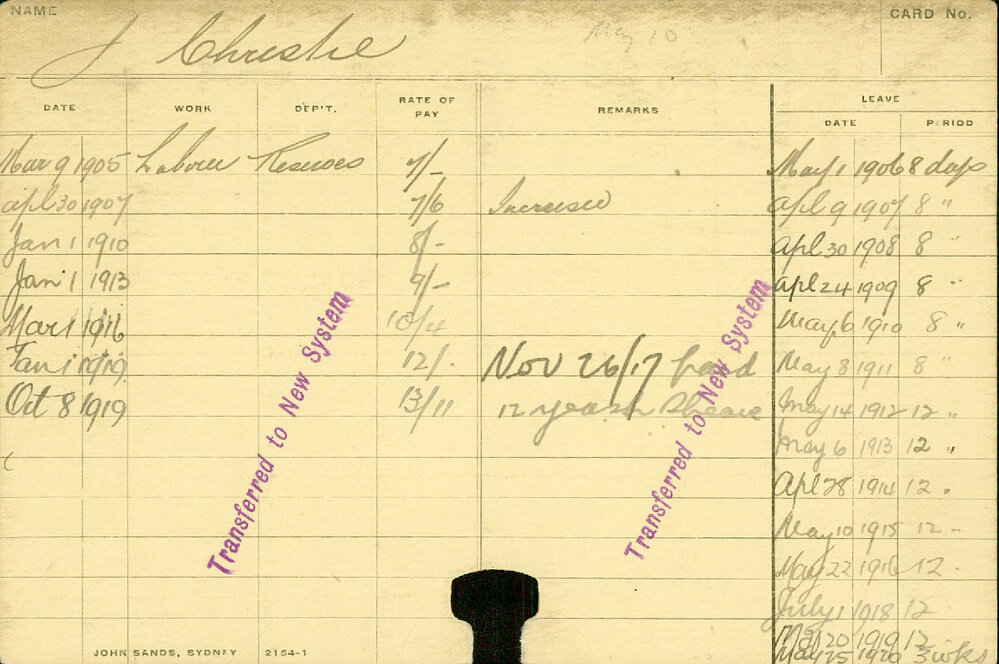 NAME
CARD No.
J Christie
May 10
DATE WORK DEP'T. RATE OF PAY REMARKS LEAVE
DATE PERIOD
Mar 9 1905 Labourer Reserves 7/- May 1 1906 8 days
Apl 30 1907 7/6 Increased Apl 9 1907 8 "
Jan 1 1910 8/- Apl 30 1908 8 "
Jan 1 1913 9/- Apl 24 1909 8 "
Mar 1 1916 10/4 May 6 1910 8 "
Jan 1 1919 12/- Nov 26/17 May 8 1911 8 "
Oct 8 1919 13/11 12 years May 14 1912 12 "
May 6 1913 12 "
Apl 28 1914 12 "
May 10 1915 12 "
May 22 1916 12 "
July 1 1918 12
1919 12
May 25 1920 3 wks
Transferred to New System
Transferred to New System
JOHN SANDS, SYDNEY 2154-1